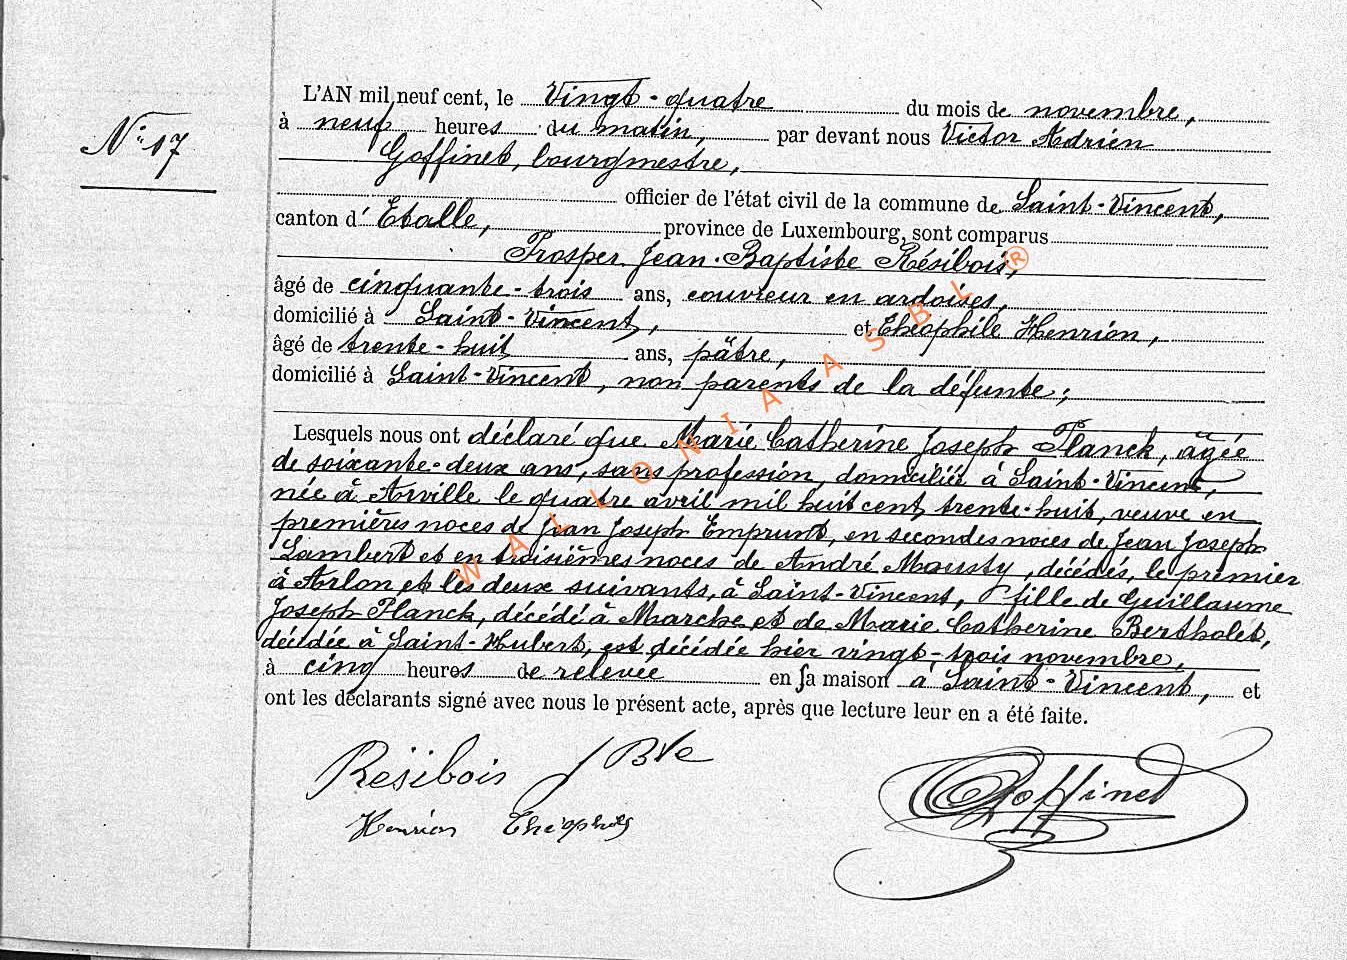 N° 17
L'AN mil neuf cent, le Vingt-quatre du mois de novembre,
à neuf heures du matin, par devant nous Victor Adrien
Goffinet, bourgmestre,
officier de l'état civil de la commune de Saint-Vincent,
canton d' Etalle, province de Luxembourg, sont comparus
Prosper Jean-Baptiste Résibois,
âgé de cinquante-trois ans, couvreur en ardoises,
domicilié à Saint-Vincent, et Théophile Henrion,
âgé de trente-huit ans, pâtre,
domicilié à Saint-Vincent, non parents de la défunte;
Lesquels nous ont déclaré que Marie Catherine Joseph Planck, âgée
de soixante-deux ans, sans profession, domiciliée à Saint-Vincent,
née à Arville le quatre avril mil huit cent trente-huit, veuve en
premières noces de Jean Joseph Emprunt, en secondes noces de Jean Joseph
Lambert et en troisièmes noces de André Mousty, décédés, le premier
à Arlon et les deux suivants, à Saint-Vincent, fille de Guillaume
Joseph Planck, décédé à Marche et de Marie Catherine Bertholet,
décédée à Saint-Hubert, est décédée hier vingt-trois novembre,
à cinq heures de relevée en sa maison à Saint-Vincent, et
ont les déclarants signé avec nous le présent acte, après que lecture leur en a été faite.
Résibois J Bte
Goffinet
Henrion Théophile
WALLONIA ASBL ®